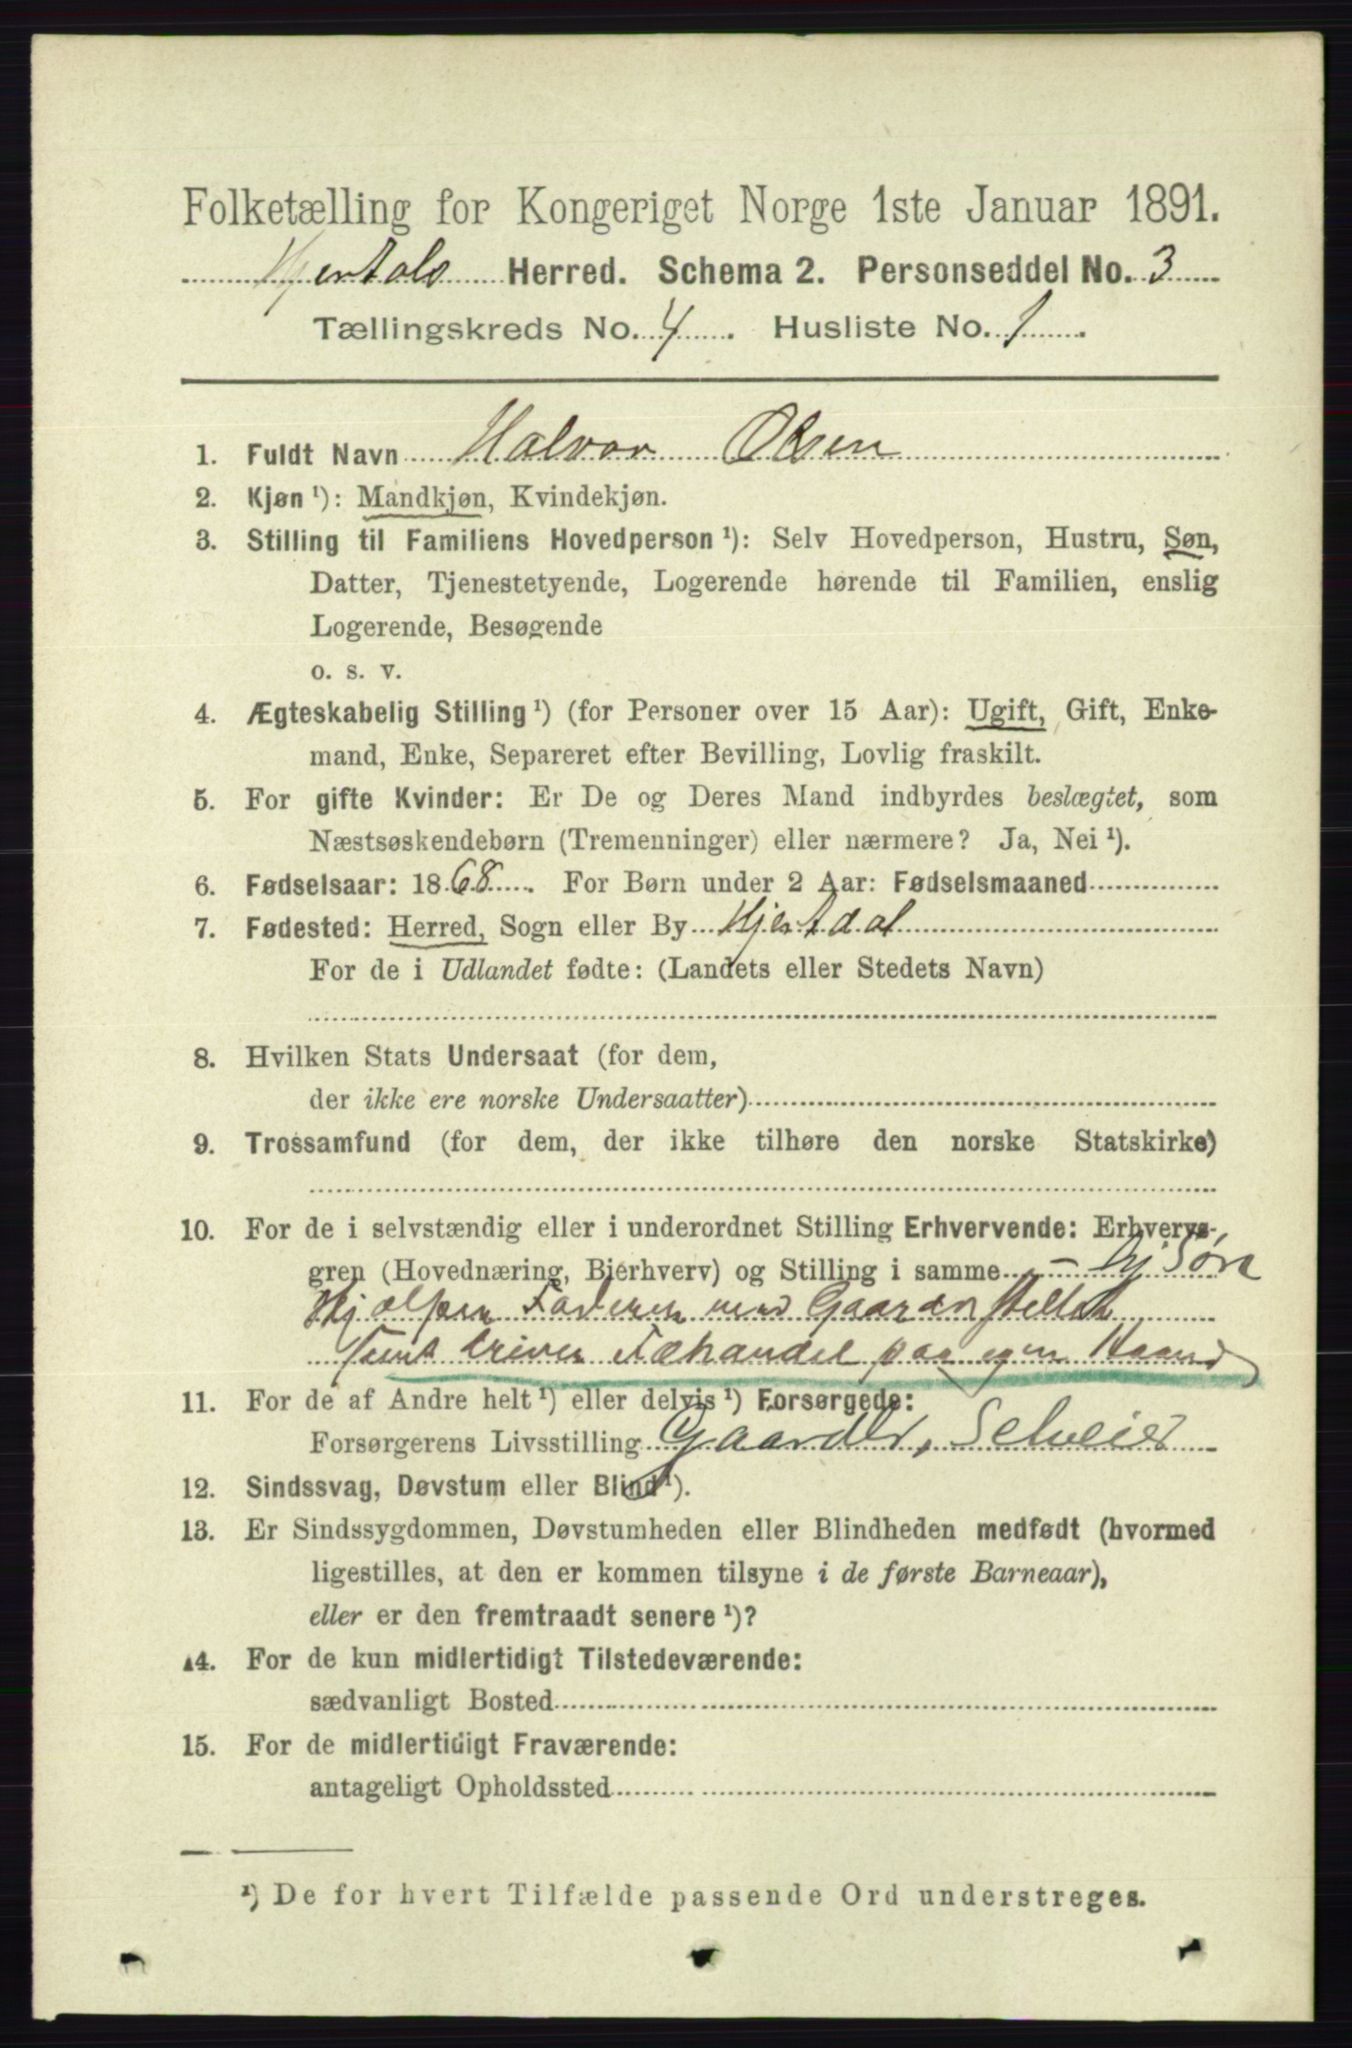 Folketælling for Kongeriget Norge 1ste Januar 1891.
Hjertals Herred. Schema 2. Personseddel No. 3
Tællingskreds No. 4. Husliste No. 1.
1. Fuldt Navn Halvor Olsen
2. Kjøn ¹): Mandkjøn, Kvindekjøn.
3. Stilling til Familiens Hovedperson ¹): Selv Hovedperson, Hustru, Søn,
Datter, Tjenestetyende, Logerende hørende til Familien, enslig
Logerende, Besøgende
o. s. v.
4. Ægteskabelig Stilling ¹) (for Personer over 15 Aar): Ugift, Gift, Enke-
mand, Enke, Separeret efter Bevilling, Lovlig fraskilt.
5. For gifte Kvinder: Er De og Deres Mand indbyrdes beslægtet, som
Næstsøskendebørn (Tremenninger) eller nærmere? Ja, Nei ¹).
6. Fødselsaar: 1868. For Børn under 2 Aar: Fødselsmaaned
7. Fødested: Herred, Sogn eller By Hjertdal
For de i Udlandet fødte: (Landets eller Stedets Navn)
8. Hvilken Stats Undersaat (for dem,
der ikke ere norske Undersaatter)
9. Trossamfund (for dem, der ikke tilhøre den norske Statskirke)
10. For de i selvstændig eller i underordnet Stilling Erhvervende: Erhvervs-
gren (Hovednæring, Bierhverv) og Stilling i samme
Hjælper Faderen med Gaardsstellet
samt driver Fæhandel paa egen Haand
11. For de af Andre helt ¹) eller delvis ¹) Forsørgede:
Forsørgerens Livsstilling Gaardbr, Selveier
12. Sindssvag, Døvstum eller Blind ¹).
13. Er Sindssygdommen, Døvstumheden eller Blindheden medfødt (hvormed
ligestilles, at den er kommen tilsyne i de første Barneaar),
eller er den fremtraadt senere ¹)?
14. For de kun midlertidigt Tilstedeværende:
sædvanligt Bosted
15. For de midlertidigt Fraværende:
antageligt Opholdssted
¹) De for hvert Tilfælde passende Ord understreges.